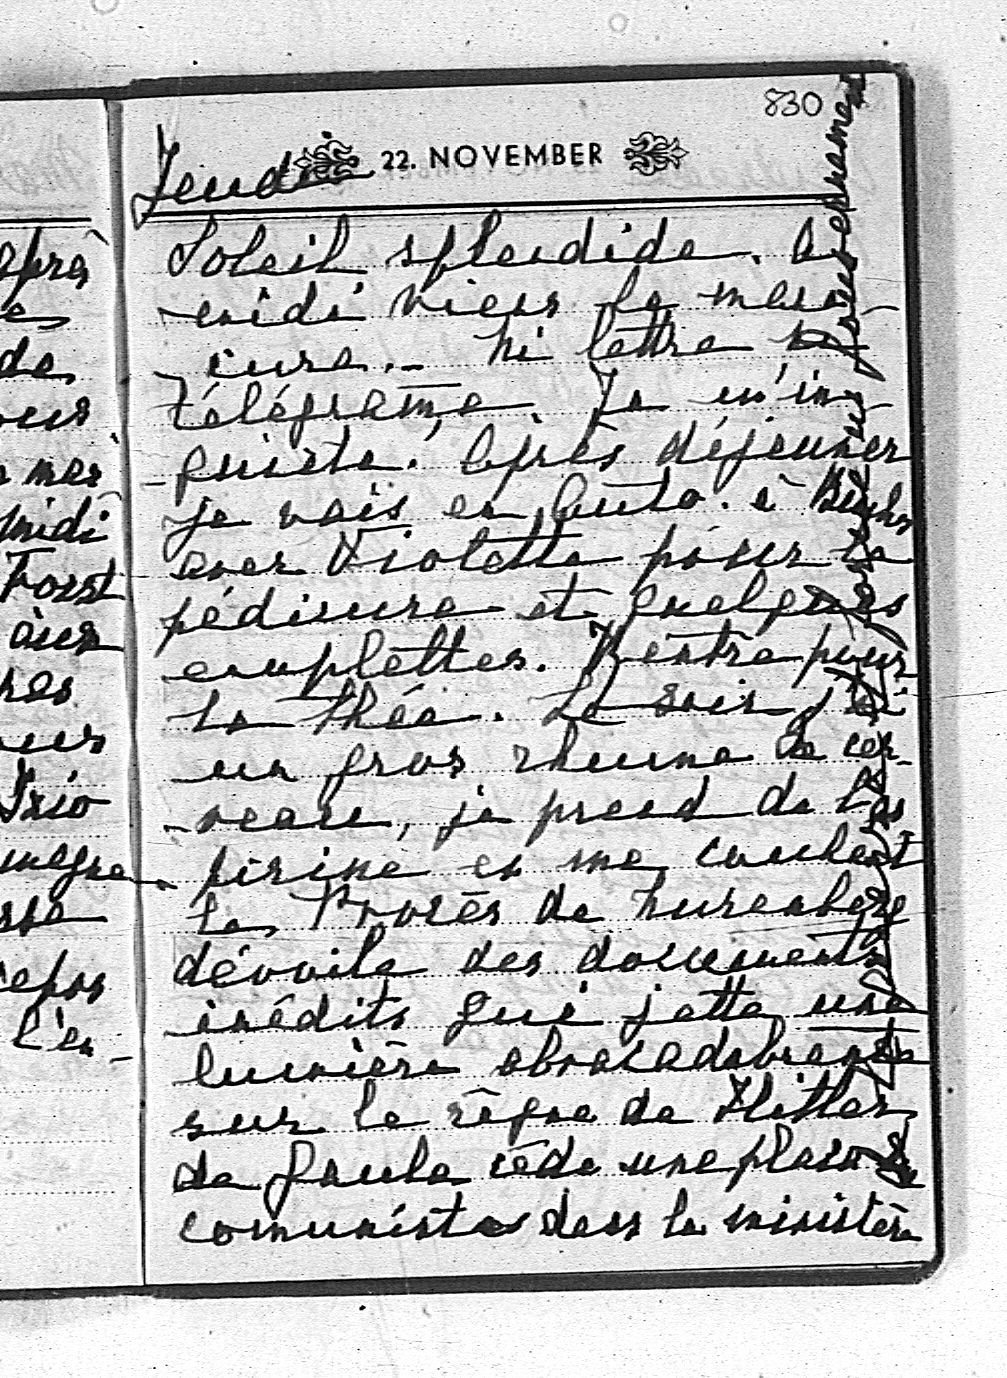 830
Jeudi
22. NOVEMBER
Soleil splendide. A
midi viens la mani-
cure. Ni lettre ni
télégrame. Je m'in-
quiete. Après déjeuner
je vais en Auto à
avec Violette pour la
pédicure et quelques
emplettes. Rentre pour
le thée. Le soir j'ai
un gros rhume de cer-
veau, je prend de l'as
pirine en me couchant
Le Procès de Nuremberg
dévoile des documents
inédits qui jette une
lumière abracadabrante
sur le règne de Hitler
de Gaule cède une place au
comuniste dans le ministère
après
de
mes
midi
Forst
Trio
repos
l'en-